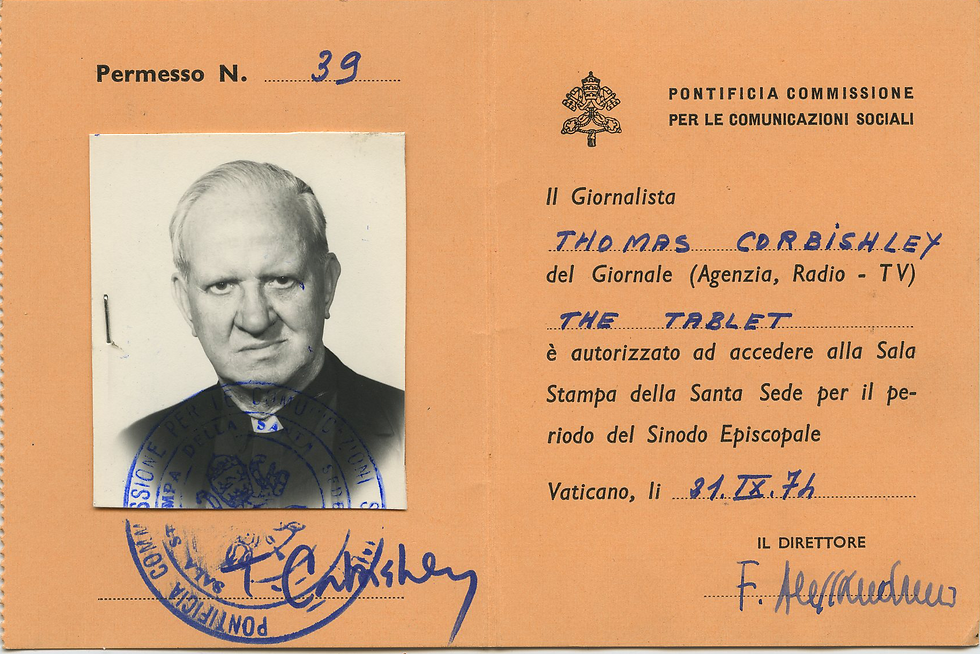 Permesso N. 39
PONTIFICIA COMMISSIONE PER LE COMUNICAZIONI
SALA STAMPA DELLA SANTA SEDE
T. Corbishley
PONTIFICIA COMMISSIONE
PER LE COMUNICAZIONI SOCIALI
Il Giornalista
THOMAS CORBISHLEY
del Giornale (Agenzia, Radio - TV)
THE TABLET
è autorizzato ad accedere alla Sala
Stampa della Santa Sede per il pe-
riodo del Sinodo Episcopale
Vaticano, li
IL DIRETTORE
F. Alessandrini